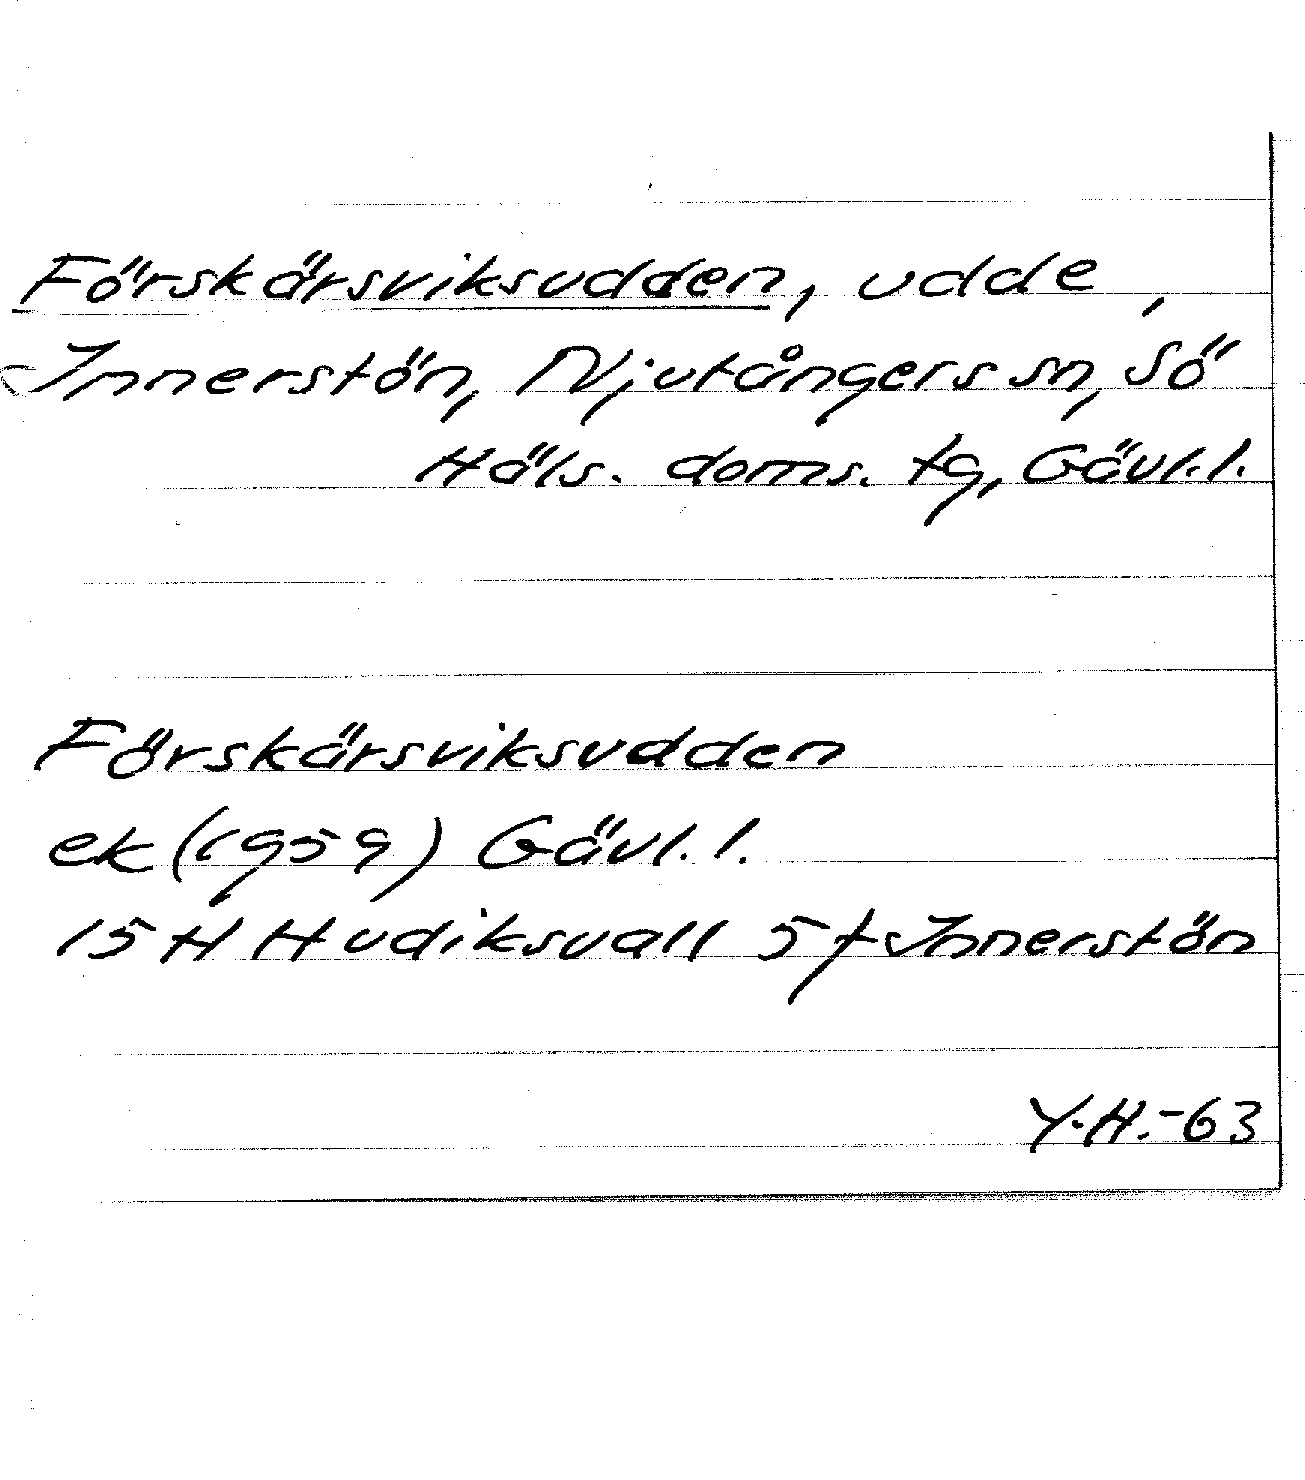 Förskärsviksudden, udde,
Innerstön, Njutångers sn, Sö
Häls. doms. tg, Gävl.l.
Förskärsviksudden
ek (1959) Gävl. l.
15 H Hudiksvall 5 f Innerstön
Y.H.-63